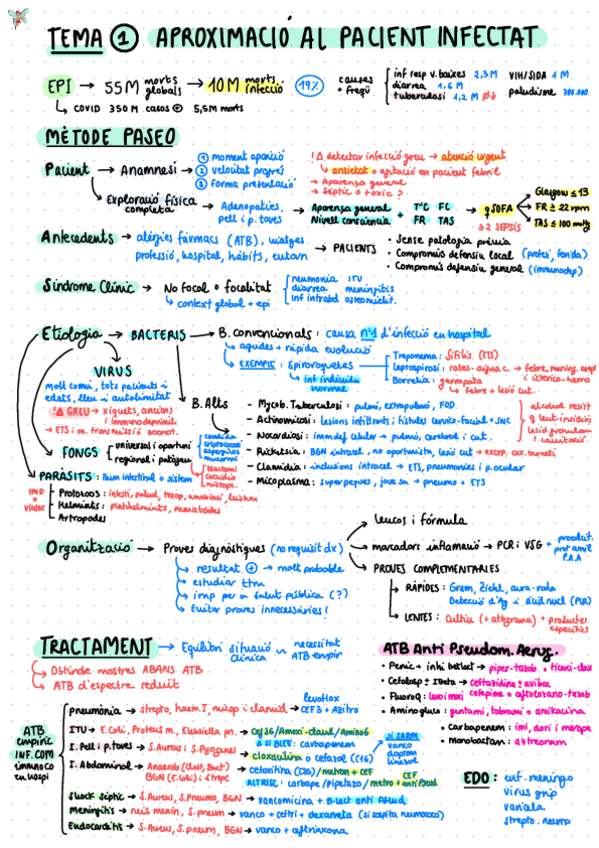 TEMA 1 APROXIMACIÓ AL PACIENT INFECTAT
EPI → 55M morts globals → 10M morts infecció 19% causes + freqü
inf resp v. baixes 2,3 M
diarrea 1,6 M
tuberculosi 1,2 M
VIH/SIDA 1 M
paludisme
↳ COVID 350 M casos 5,5M morts
MÈTODE PASEO
Pacient → Anamnesi →
1 moment aparició
2 velocitat progrés
3 forma presentació
detectar infecció greu → atenció urgent
ansietat o agitació en pacient febril
→ Aparença general
→ sèptic o tòxic?
Exploració física completa → Adenopaties, pell i p. toves → Aparença general Nivell consciència + TºC FC FR TAS → qSOFA
≥2 SEPSIS
Glasgow ≤ 13
FR ≥ 22 rpm
TAS ≤ 100 mmHg
Antecedents → al·lèrgies fàrmacs (ATB), viatges
professió, hospital, hàbits, entorn
→ PACIENTS
• Sense patologia prèvia
• Compromís defensiu local (pròtesi, ferida)
• Compromís defensiu general (immunodep)
Síndrome Clínic → No focal o focalitat
↳ context global + epi
neumonia ITU
diarrea meningitis
inf intrabd osteomielit.
Etiologia → BACTERIS → B. convencionals: causa nº1 d'infecció en hospital
↳ agudes + ràpida evolució
↳ EXEMPLE: espiroquetes
↳ inf individu normal
Treponema: sífilis (ETS)
Leptospirosi: rates - aigua c. → febre, mening, ampul
i ictérico-hemo
Borrelia: garrapata
↳ Febre + lesió cut.
VIRUS
molt comú, tots pacients i
edats, lleu i autolimitat
GREU → xiquets, ancians
i immunodeprimit
→ ETS: m. transmissió sexual.
B. Alts
- Mycob. Tuberculosi: pulmó, extrapulmó, FOD
- Actinomicosi: lesions infiltrants i fístules cérvico-facial + SNC
- Nocardiosi: immdef cel·lular → pulmó, cerebral i cut.
- Rickètsia: BGN intracel, no oportunista, lesió cut → excep. cox. burnetii
- Clamídia: inclusions intracel → ETS, pneumonies i p. ocular
- Micoplasma: super peques, joves → pneumo + ETS
FONGS
universal i oportuni
regional i patògeu
candida
criptococo
aspergilus
mucoral
blastomi
coccidio
histopl.
PARÀSITS: llum intestinal o sistèm
• Protozoos: intestí, palud, toxop, amebiasi, leishm
• Helmints: platihelmints, nematodes
• Artropodes
Organització → Proves diagnòstiques (no requisit dx)
↳ resultat + → molt probable
↳ estudiar ttm
↳ imp per a salut pública (?)
↳ Evitar proves innecessàries!
leucos i fórmula
marcadors inflamació → PCR i VSG
P.A.A
PROVES COMPLEMENTARIES
RÀPIDES: Gram, Ziehl, aura-roda
Detecció d'Ag i àcid nucl (PCR)
LENTES: Cultiu (+ atbgrama) + productes específics
TRACTAMENT → Equilibri situació clínica ~ necessitat ATB empir
→ Obtindre mostres ABANS ATB
→ ATB d'espectre reduït
ATB Anti Pseudom. Aerug.
• Penic + inhi betlact → piper-tazob o ticarci-clav
• Cefalosp ± IBeta → ceftazidina ± avibac
cefepime o aftolozano-tazob
• Fluoroq: levo i moxi
• Aminogluco: gentami, tobrami o amikacina
• Carbapenem: imi, dori i merope
• Monobactam: aztreonam
ATB empíric INF. COM
pneumònia → strepto, haem I, micop i clamid → levoflox
CEF3 + Azitro
ITU → E. Coli, Proteus m., Klebsiella pn. → Cef3G/Amoxi-clavul/Aminog
si BLEE: carbapenem
I. Pell i p. toves → S. Aureus i S. Pyogenes → cloxacilina o cefazol (C1G)
si SARM
vanco
daptom
linezol
I. Abdominal → Anaerob (Clost, Bact)
BGN (E. Coli) i strepc
cefoxitina (C2G) / metron + CEF
ALT RISC: carbape / piperazo / metro + CEF anti Pseud
Shock sèptic → S. Aureus, S. Pneumo, BGN → vancomicina + B-lact anti Pseud
Meningitis → neis menin, S. pneum → vanco + ceftri + dexameta
Endocarditis → S. Aureus, S. pneum, BGN → vanco + ceftriaxona
EDO: enf. meningo
virus grip
variela
strepto. neumo